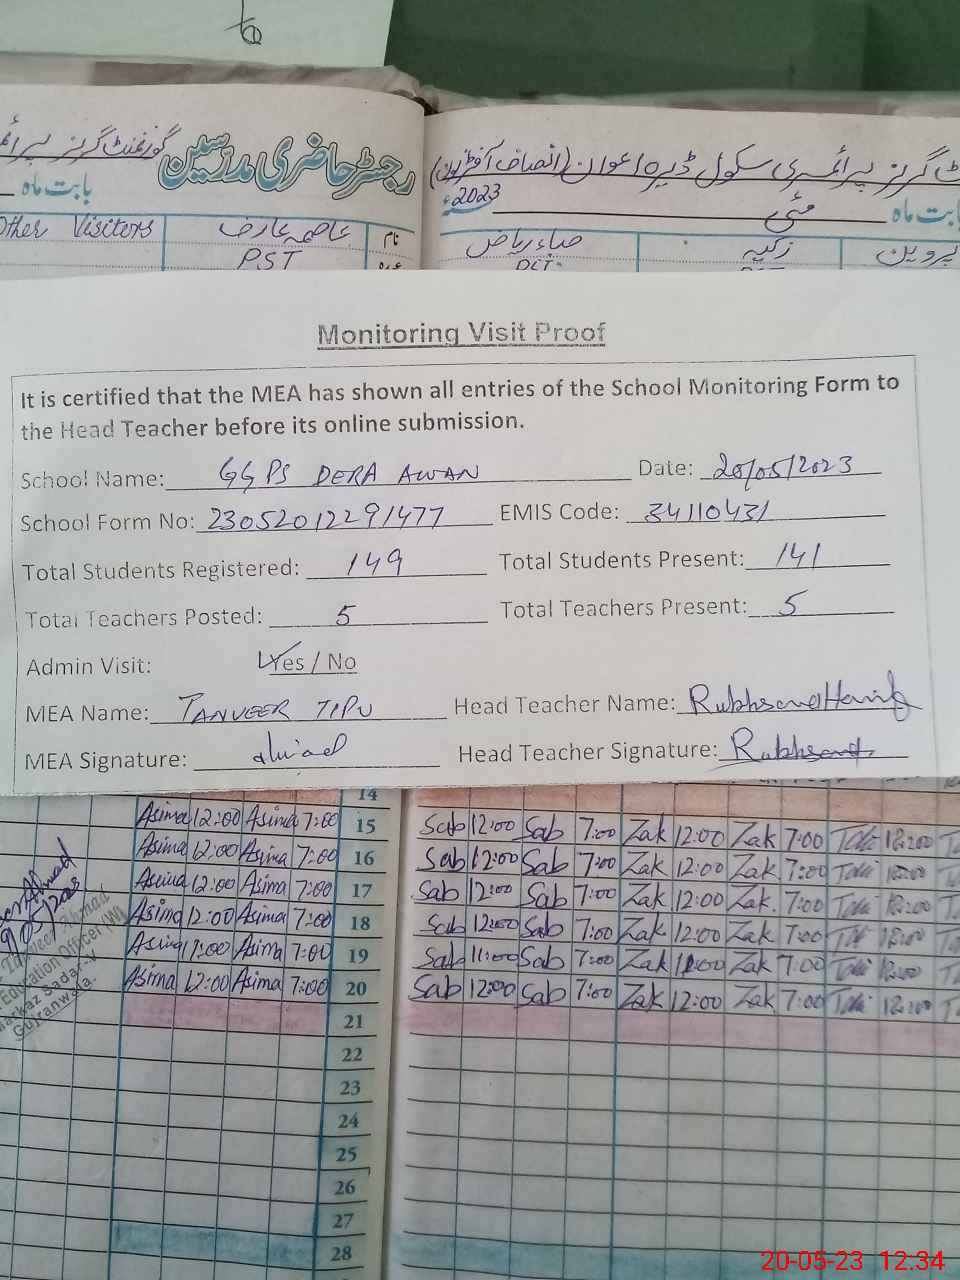 رجسٹر حاضری مدرسین
گورنمنٹ گرلز
گرلز پرائمری سکول ڈیرہ اعوان (انصاف آفٹرنون)
بابت ماہ
2023ء
مئی
بابت ماہ
Other Visitors
عاصمہ عارف
نام
صباء ریاض
زکیہ
پروین
PST
عہدہ
Monitoring Visit Proof
It is certified that the MEA has shown all entries of the School Monitoring Form to
the Head Teacher before its online submission.
School Name: GGPS DERA AWAN Date: 20/05/2023
School Form No: 23052012291477 EMIS Code: 34110431
Total Students Registered: 149 Total Students Present: 141
Total Teachers Posted: 5 Total Teachers Present: 5
Admin Visit: Yes / No
MEA Name: TANVEER TIPU Head Teacher Name: Rukhsana Hanif
MEA Signature: Head Teacher Signature: Rukhsana
14
Asima 12:00 Asima 7:00 15 Sab 12:00 Sab 7:00 Zak 12:00 Zak 7:00 12:00
Asima 12:00 Asima 7:00 16 Sab 12:00 Sab 7:00 Zak 12:00 Zak 7:00 12:00
Asima 12:00 Asima 7:00 17 Sab 12:00 Sab 7:00 Zak 12:00 Zak 7:00 12:00
Asima 12:00 Asima 7:00 18 Sab 12:00 Sab 7:00 Zak 12:00 Zak 7:00 12:00
Asima Asima 7:00 19 Sab 11:00 Sab 7:00 Zak Zak 7:00 12:00
Asima 12:00 Asima 7:00 20 Sab 12:00 Sab 7:00 Zak 12:00 Zak 7:00 12:00
Ahmad
Tanveer Ahmad
Education Officer (W)
Markaz Sadar-V
Gujranwala.
21
22
23
24
25
26
27
28
20-05-23 12.34